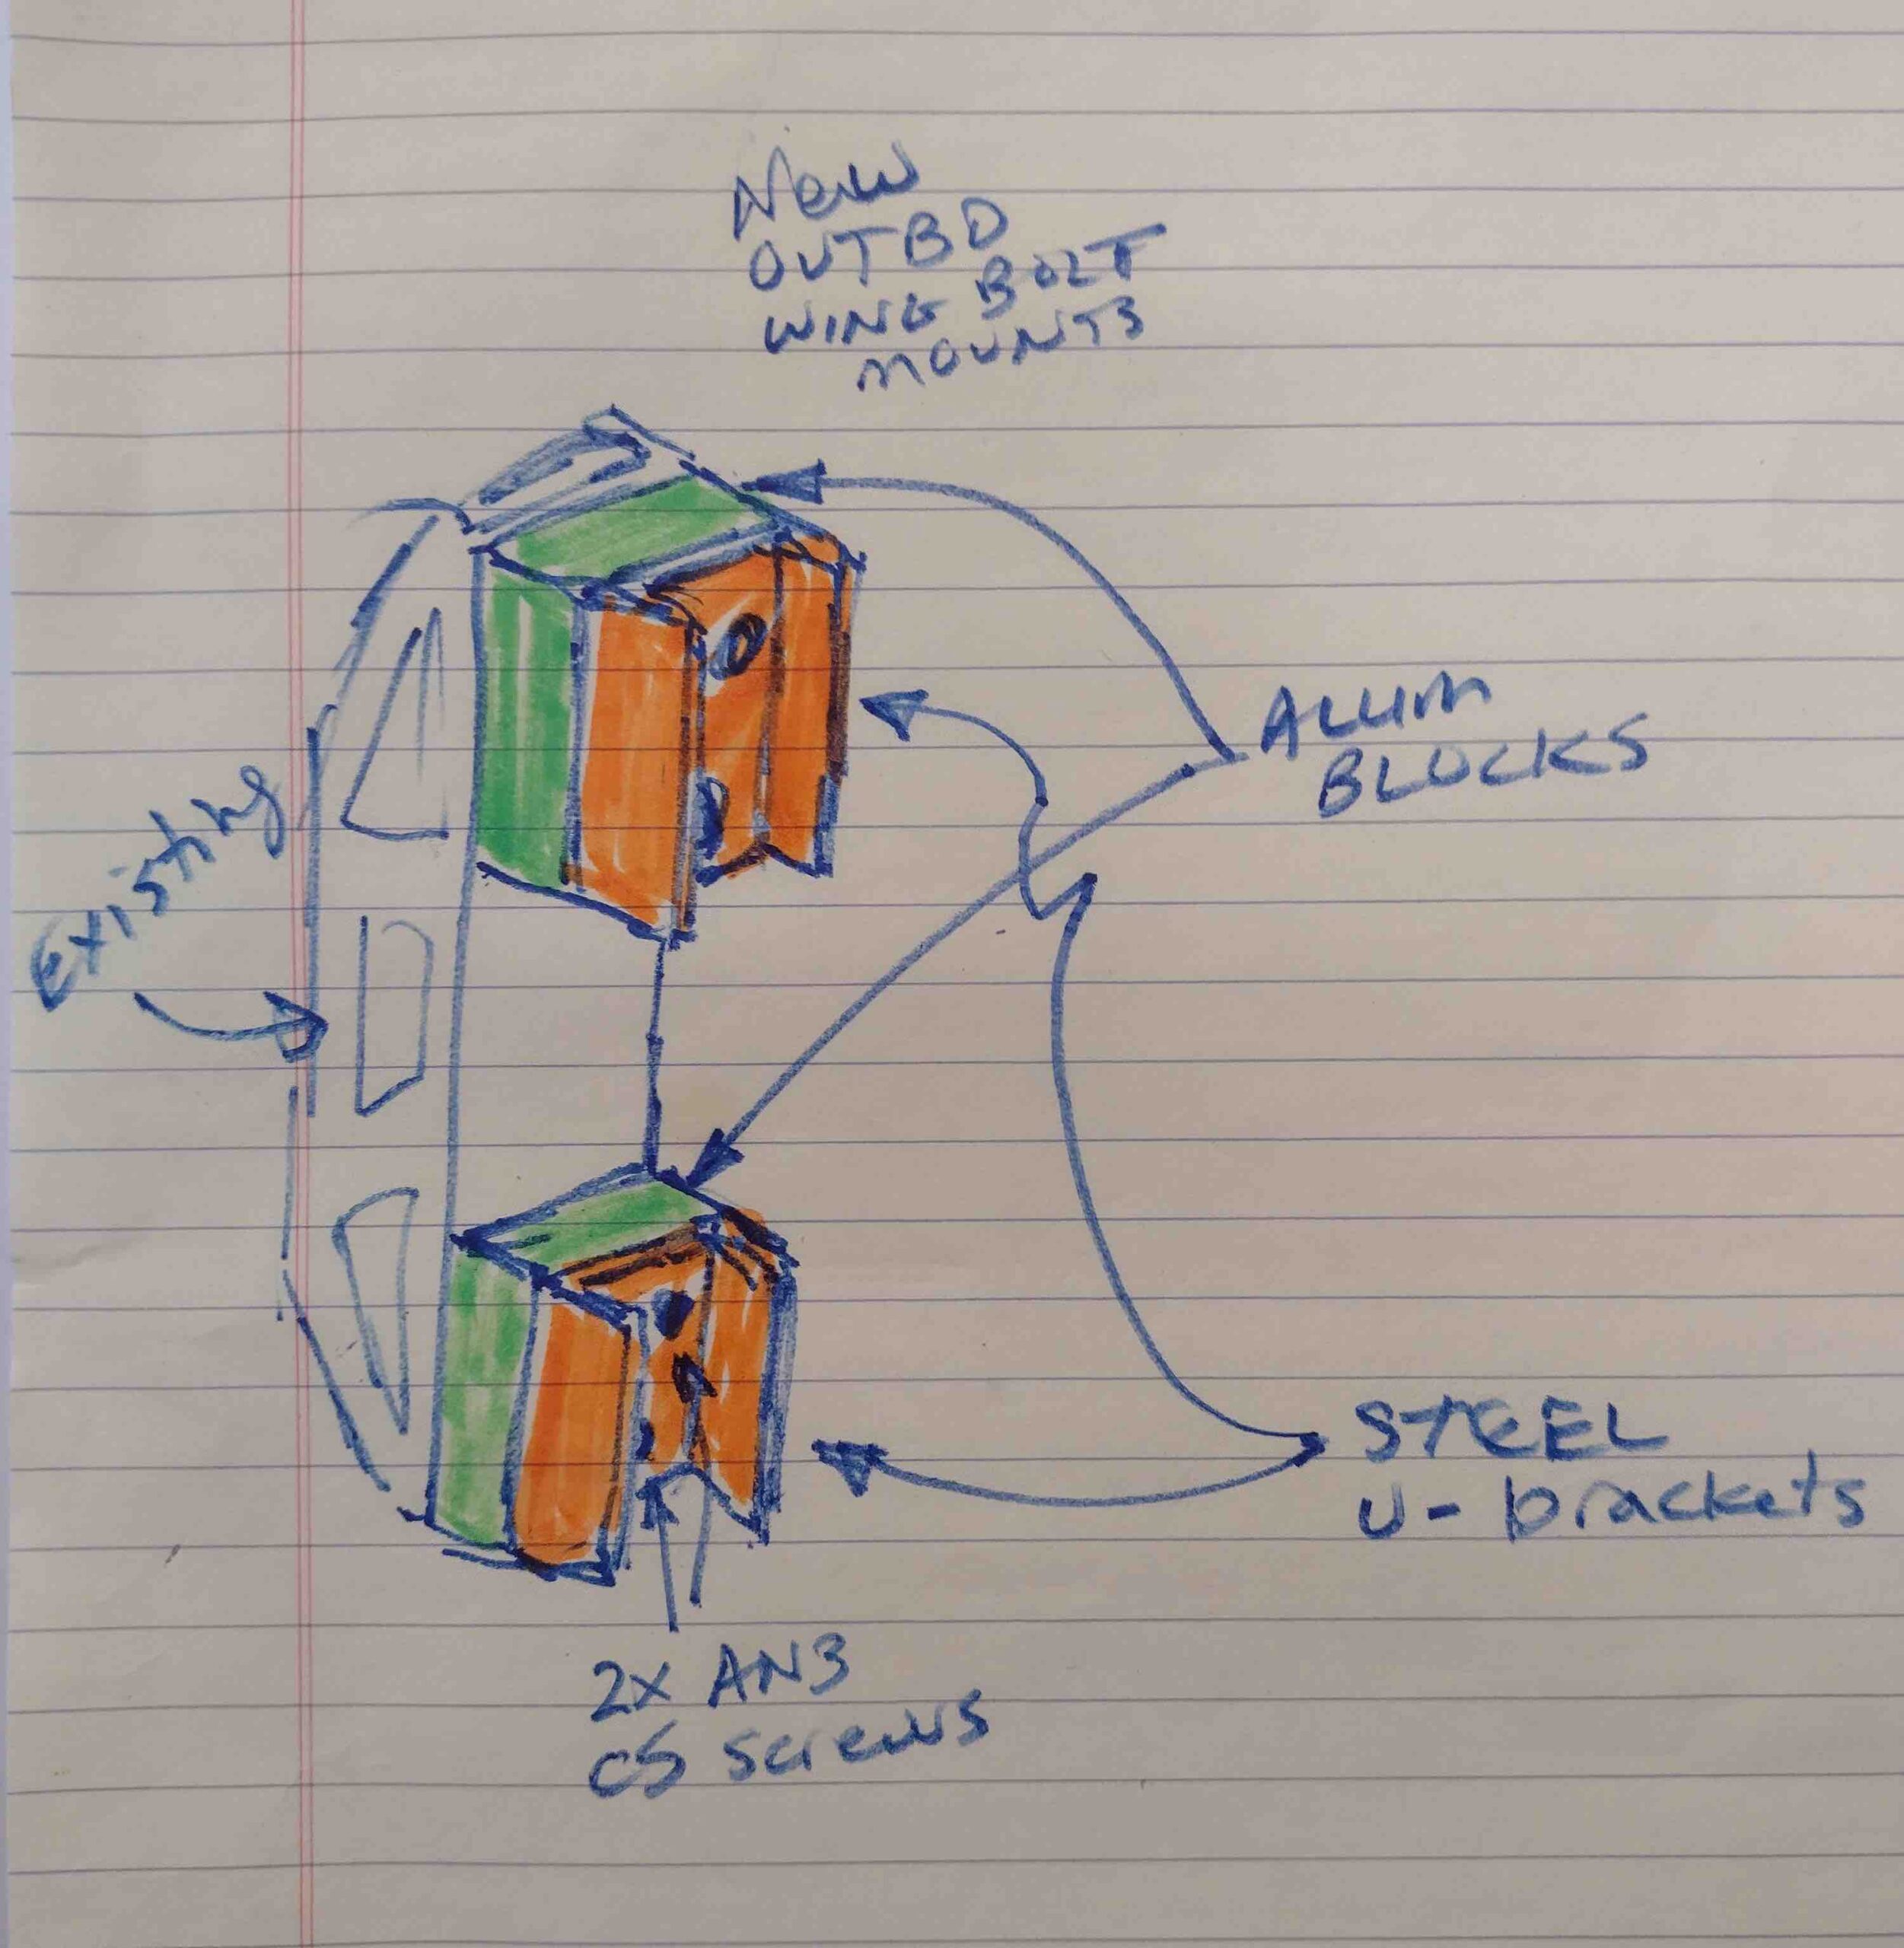 New
OUTBD
WING BOLT
MOUNTS
ALUM
BLOCKS
Existing
STEEL
U-brackets
2x AN3
CS screws